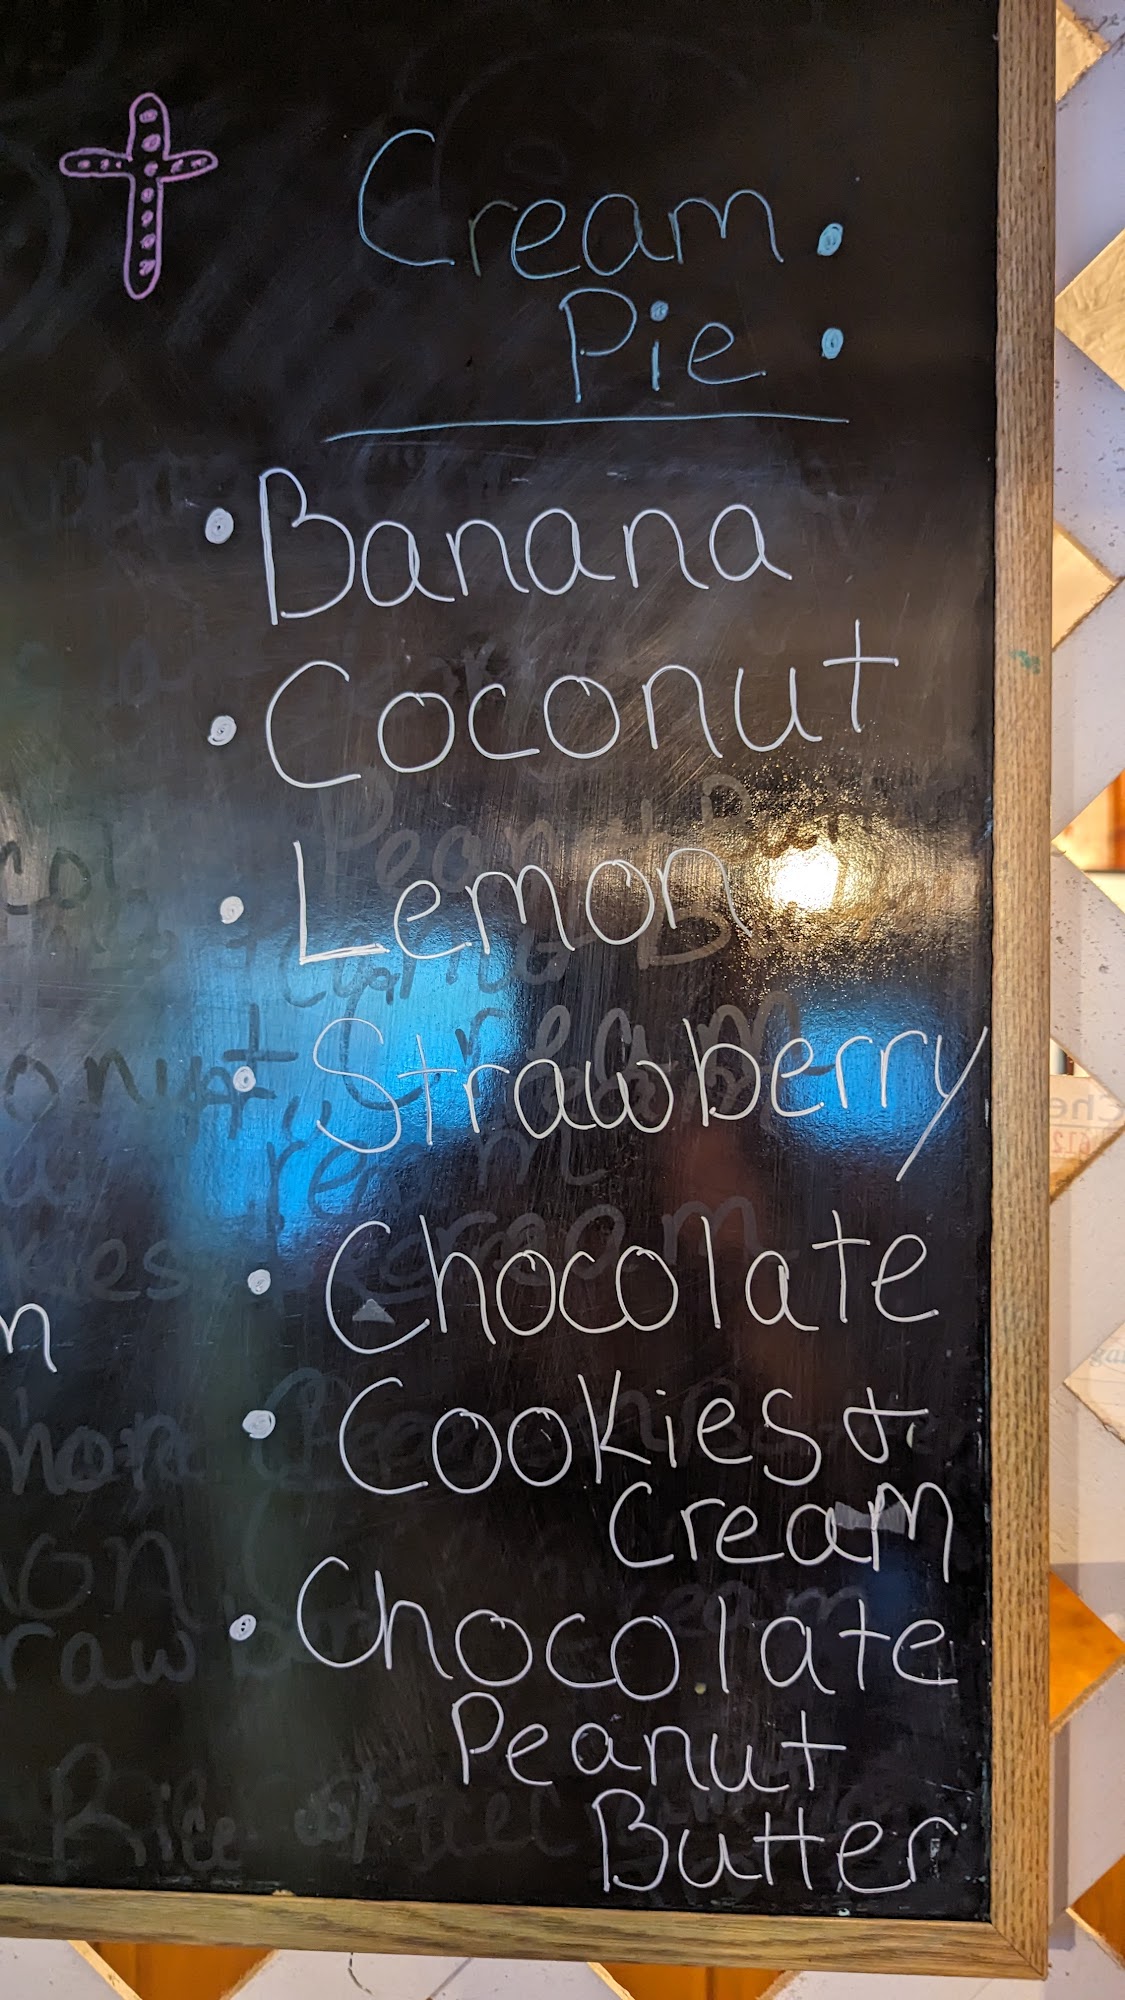 Cream
Pie :
• Banana
• Coconut
• Lemon
• Strawberry
• Chocolate
• Cookies &
Cream
• Chocolate
Peanut
Butter